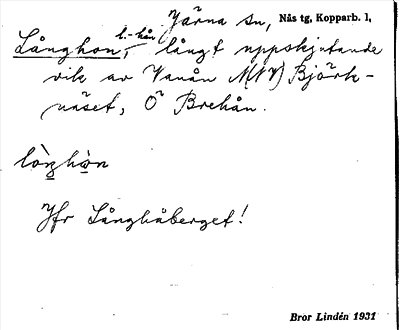 Järna sn, Nås tg, Kopparb. l,
Långhon, l.-hån långt uppskjutande
vik av Vanån N(NV) Björk-
näset, Ö Brehån.
lòŋhòn
Jfr Långhåberget!
Bror Lindén 1931